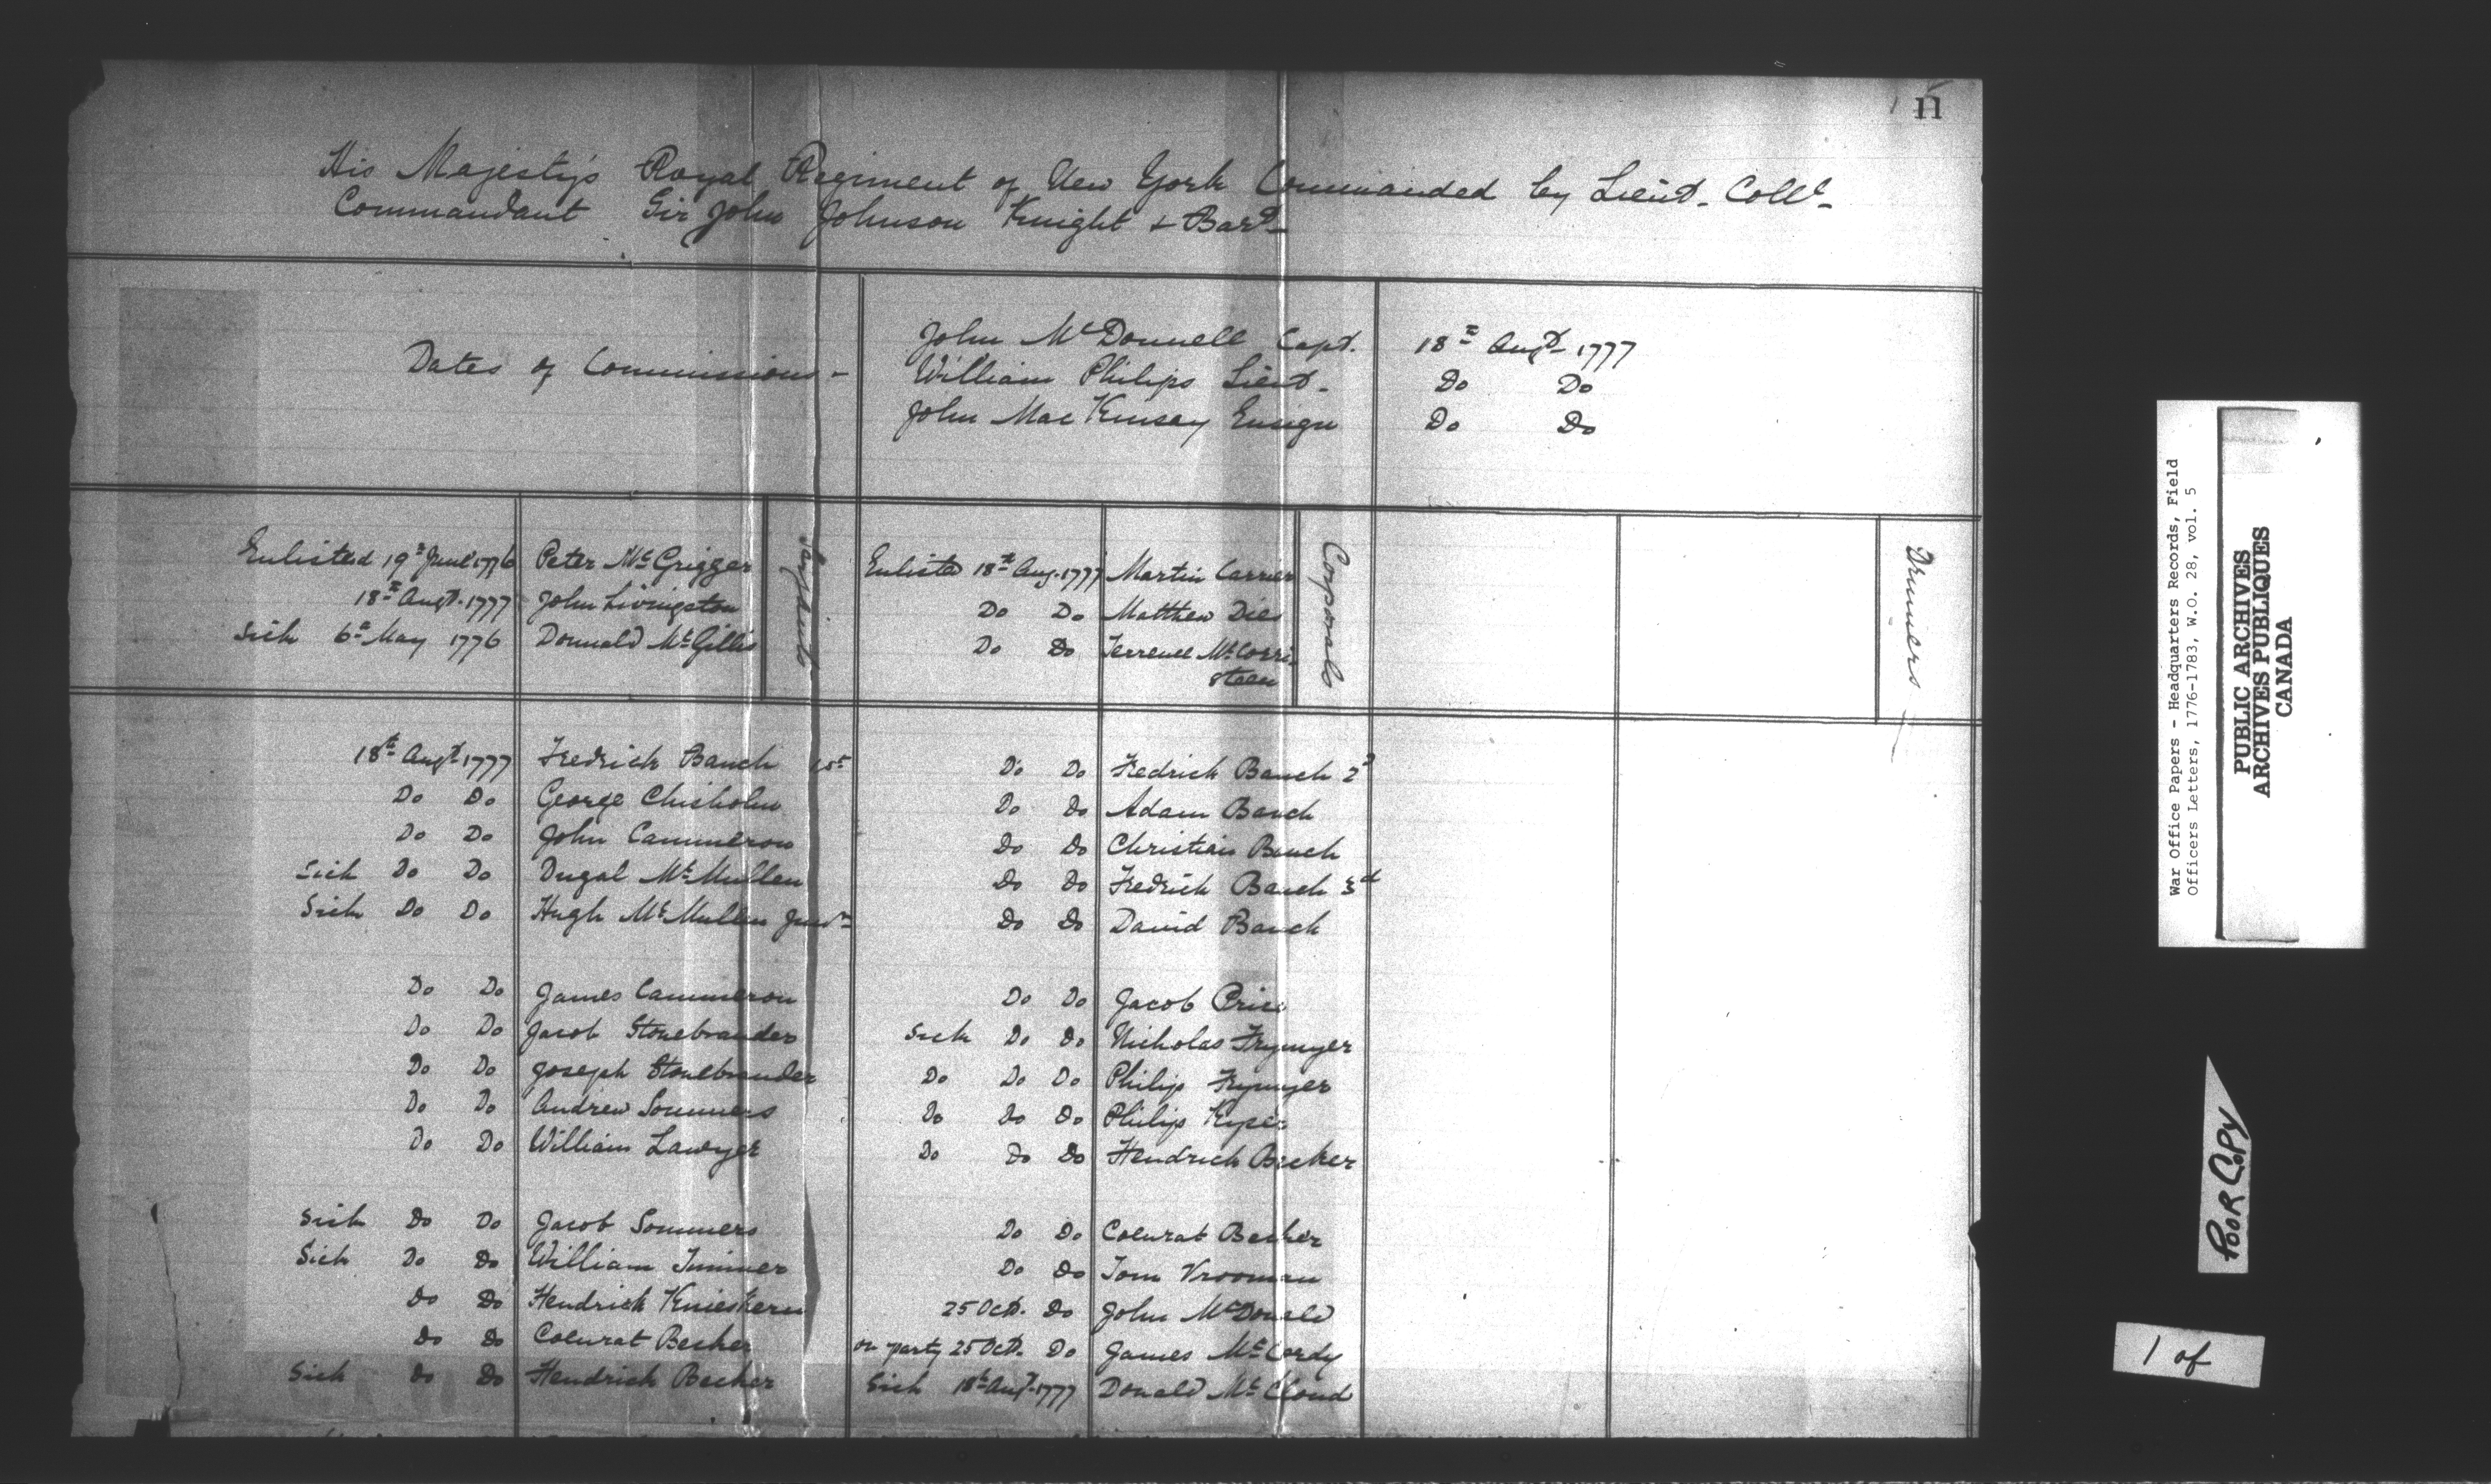 11
His Majesty's Royal Regiment of New York Commanded by Lieut. Coll.
Commandant Sir John Johnson Knight & Bart.
Dates of Commissions -
John McDonnell Capt. 18th Augt. 1777
William Philips Lieut. Do Do
John Mac Kinsay Ensign Do Do
Enlisted 19th June 1776 Peter McGrigger
18th Augt. 1777 John Livingston
Sick 6th May 1776 Donnald McGillis
Sarjeants
Enlisted 18th Aug. 1777 Martin Carrier
Do Do Matthew Dies
Do Do Terrence McCorri
steen
Corporals
Drummers
18th Augt 1777 Fredrick Bauch 1st
Do Do George Chisholm
Do Do John Cammeron
Sick Do Do Dugal McMullen
Sick Do Do Hugh McMullen Junr
Do Do James Cammeron
Do Do Jacob Stonebrander
Do Do Joseph Stonebrander
Do Do Andrew Sommers
Do Do William Lawyer
Sick Do Do Jacob Sommers
Sick Do Do William
Do Do Hendrick Knieskern
Do Do Coenrat Becker
Sick Do Do Hendrick Becker
Do Do Fredrick Bauch 2d
Do Do Adam Bauch
Do Do Christian Bauch
Do Do Fredrick Bauch 3d
Do Do David Bauch
Do Do Jacob Price
Sick Do Do Nicholas Frymyer
Do Do Do Philip Frymyer
Do Do Do Philip
Do Do Do Hendrick Becker
Do Do Coenrat Becker
Do Do Tom Vrooman
25 Oct. Do John McDonald
on party 25 Oct. Do James McCordy
Sick 18th Augt. 1777 Donald McCloud
War Office Papers - Headquarters Records, Field
Officers Letters, 1776-1783, W.O. 28, vol. 5
PUBLIC ARCHIVES
ARCHIVES PUBLIQUES
CANADA
POOR COPY
1 of